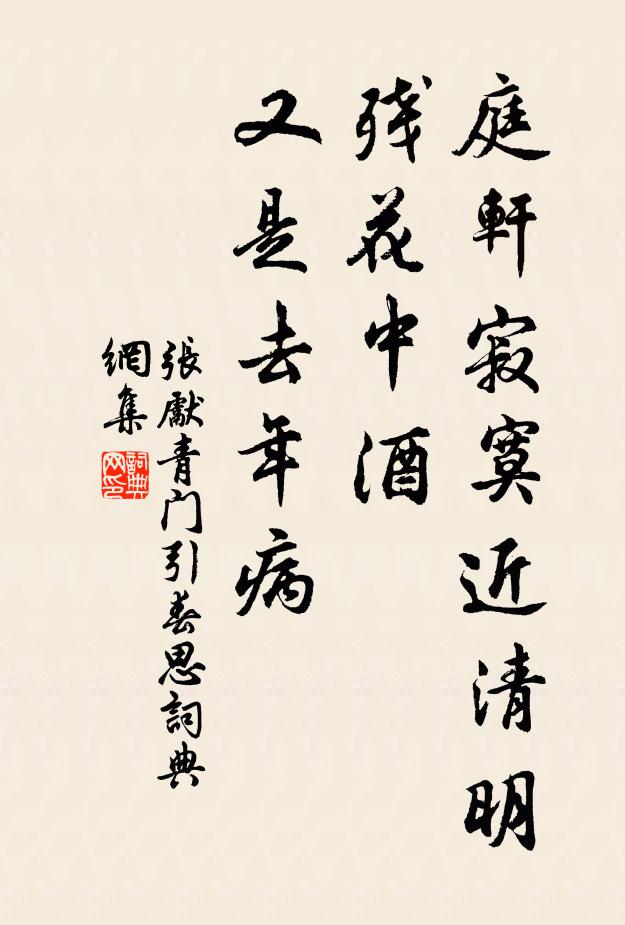 庭軒寂寞近清明
残花中酒
又是去年病
張獻青门引春思詞典
網集
詞典网印